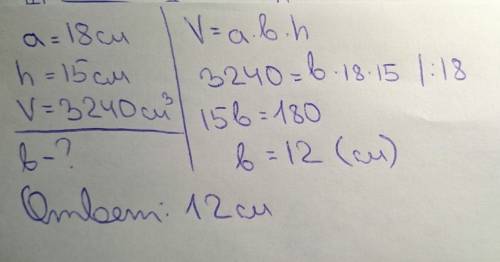 a = 18 см
h = 15 см
V = 3240 см³
в - ?
V = a · в · h
3240 = в · 18 · 15 | : 18
15в = 180
в = 12 (см)
Ответ: 12 см